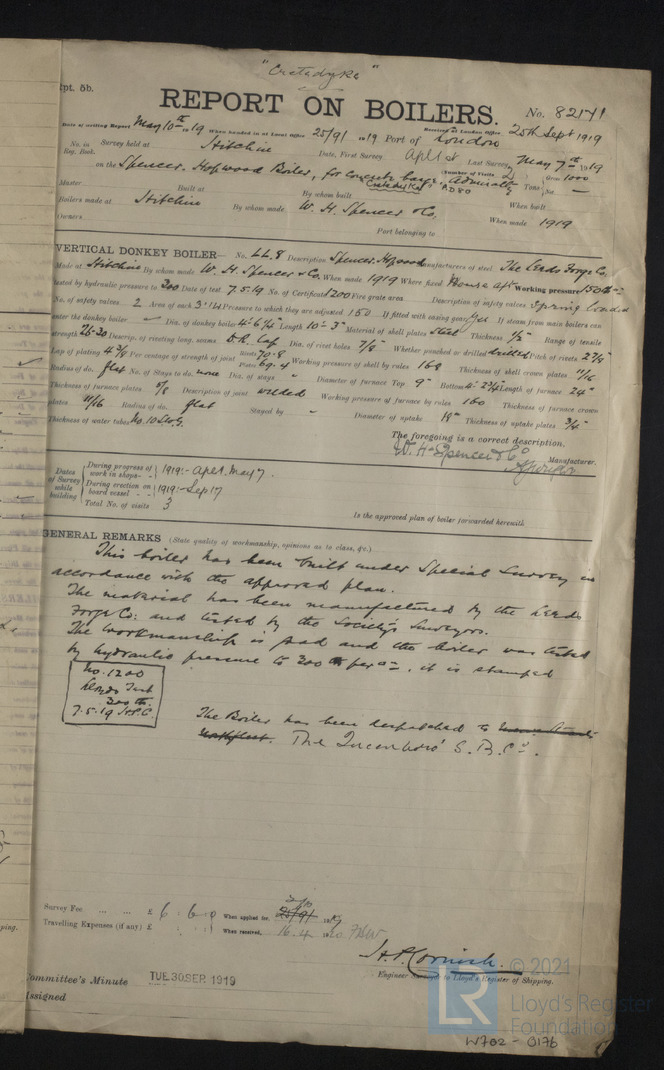 "Cretedyke"
Rpt. 5b.
REPORT ON BOILERS.
No. 82171
Date of writing Report May 10th 1919 When handed in at Local Office 25/9/ 1919 Port of London Received at London Office 25th Sept 1919
No. in Reg. Book. Survey held at Hitchin Date, First Survey April 1st Last Survey May 7th 1919
on the Spencer-Hopwood Boiler, for concrete barge, Admiralty (Number of Visits 2) Gross 1000 Tons Net —
"Cretedyke" AD80
Master Built at By whom built When built
Boilers made at Hitchin By whom made W. H. Spencer & Co. When made 1919
Owners Port belonging to
VERTICAL DONKEY BOILER— No. LL.8 Description Spencer Hopwood Manufacturers of steel The Leeds Forge Co.
Made at Hitchin By whom made W. H. Spencer & Co. When made 1919 Where fixed House aft Working pressure 150 lbs
tested by hydraulic pressure to 300 Date of test 7.5.19 No. of Certificate 1200 Fire grate area Description of safety valves Spring loaded
No. of safety valves 2 Area of each 3.14 Pressure to which they are adjusted 150 If fitted with easing gear Yes If steam from main boilers can
enter the donkey boiler — Dia. of donkey boiler 4'-6 3/4" Length 10'-3" Material of shell plates Steel Thickness 1/2" Range of tensile
strength 26-30 Descrip. of riveting long. seams D.R. Lap Dia. of rivet holes 7/8" Whether punched or drilled drilled Pitch of rivets 2 7/8"
Lap of plating 4 3/8 Per centage of strength of joint Rivets 70.8 Plates 69.4 Working pressure of shell by rules 168 Thickness of shell crown plates 11/16
Radius of do. flat No. of Stays to do. none Dia. of stays " Diameter of furnace Top 9" Bottom 4'-2 3/4" Length of furnace 24"
Thickness of furnace plates 5/8 Description of joint welded Working pressure of furnace by rules 160 Thickness of furnace crown
plates 11/16 Radius of do. flat Stayed by " Diameter of uptake 18" Thickness of uptake plates 3/4"
Thickness of water tubes No. 10 S.W.G.
The foregoing is a correct description,
W. H. Spencer & Co. Manufacturer.
Dates of Survey while building
During progress of work in shops - - 1919:- Apl 1. May 7.
During erection on board vessel - - 1919:- Sep 17
Total No. of visits 3
Is the approved plan of boiler forwarded herewith
GENERAL REMARKS (State quality of workmanship, opinions as to class, &c.)
This boiler has been built under Special Survey in
accordance with the approved plan.
The material has been manufactured by the Leeds
Forge Co: and tested by the Society's Surveyors.
The workmanship is good and the boiler was tested
by hydraulic pressure to 300 lbs per □", it is stamped
No. 1200
Lloyds Test
300 lbs.
7.5.19 H.P.C.
The Boiler has been despatched to
The Queenboro' S. B. Co.
Survey Fee ... ... £ 6 : 6 : 0 When applied for, 25/9/ 1919
Travelling Expenses (if any) £ : : When received, 16.4 1920
H. P. Cornish.
Engineer Surveyor to Lloyd's Register of Shipping.
Committee's Minute TUE 30 SEP 1919
Assigned
© 2021
LR
Lloyd's Register
Foundation
W702 - 0176